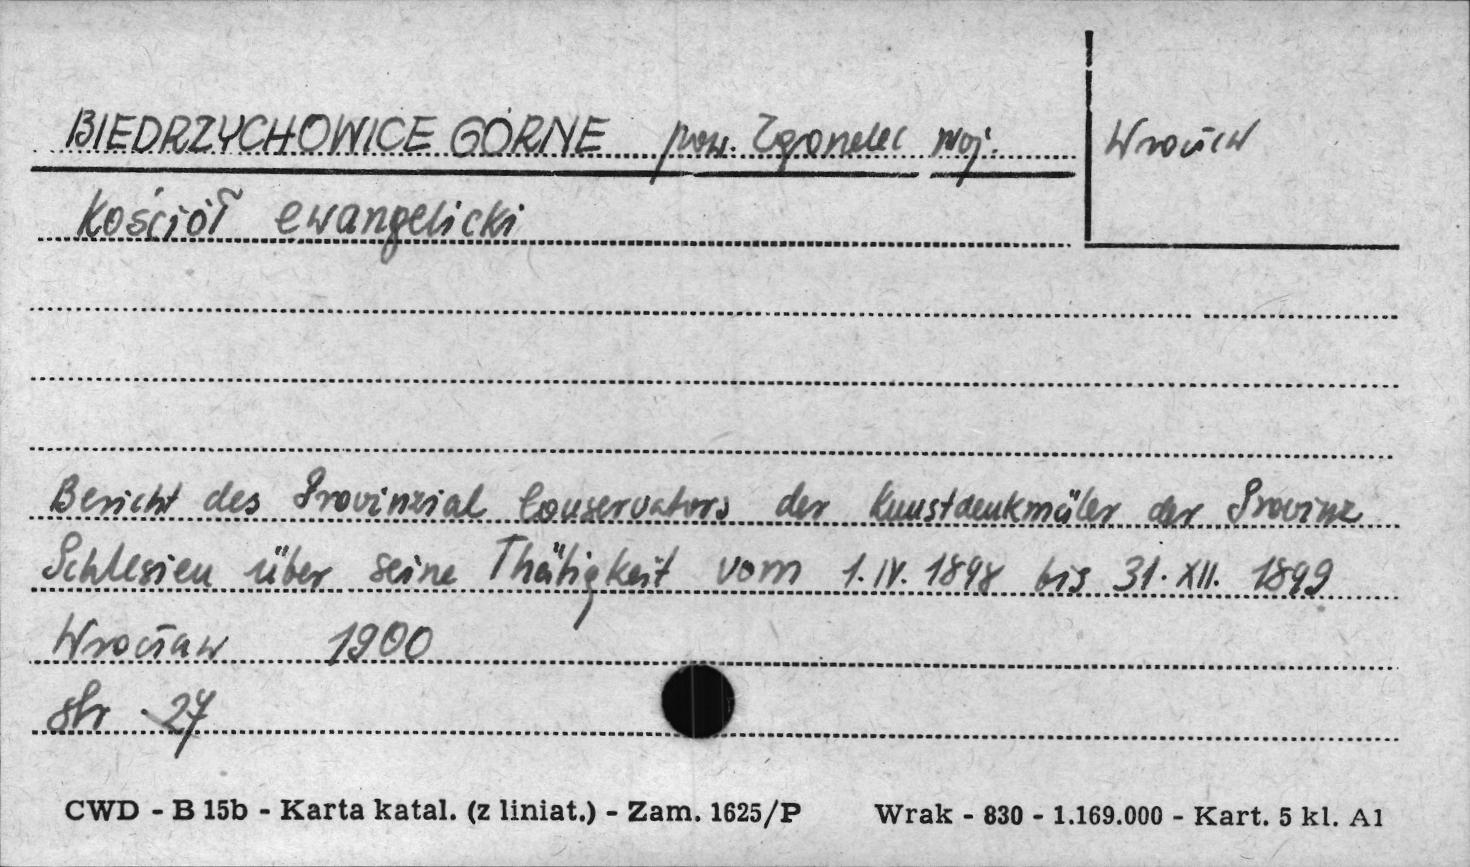 BIEDRZYCHOWICE GÓRNE pow. Zgorzelec woj. Wrocław
Kościół ewangelicki
Bericht des Provinzial Conservators der Kunstdenkmäler der Provinz
Schlesien über seine Thätigkeit vom 1.IV. 1898 bis 31. XII. 1899
Wrocław 1900
str. 27
CWD - B 15b - Karta katal. (z liniat.) - Zam. 1625/P Wrak - 830 - 1.169.000 - Kart. 5 kl. A1